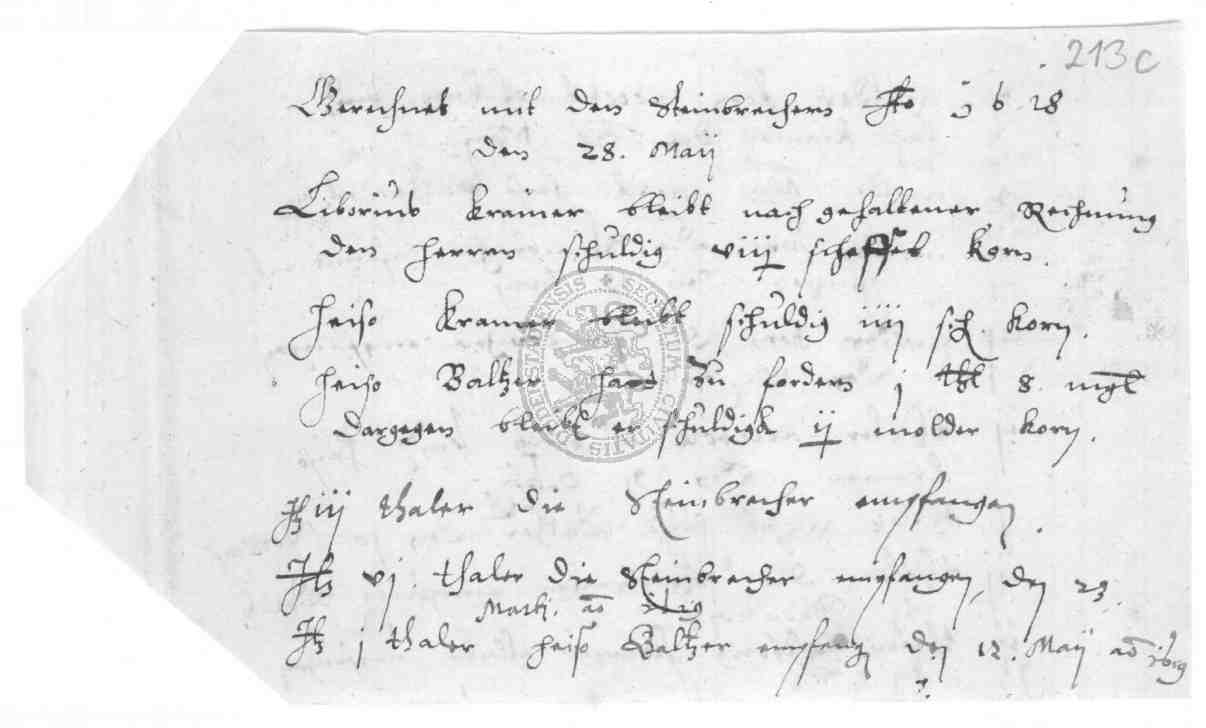 213c
Gerechnet mit den Steinbrechern Ao j 6 18
den 28. Maij
Liborius Kramer bleibt nach gehaltener Rechnung
den herren schuldig viij scheffel Korn.
heiso Kramer bleibt schuldig iiij sch. Korn.
heiso Baltzer hatt zu fordern j thl 8 mgl
dargegen bleibt er schuldigk ij molder Korn.
It iij thaler die Steinbrecher empfangen
It vj thaler die Steinbrecher empfangen, den 23.
Martij. ao
It j thaler heiso Baltzer empfangen den 12. Maij ao 1619
SECRETA CIVITATIS